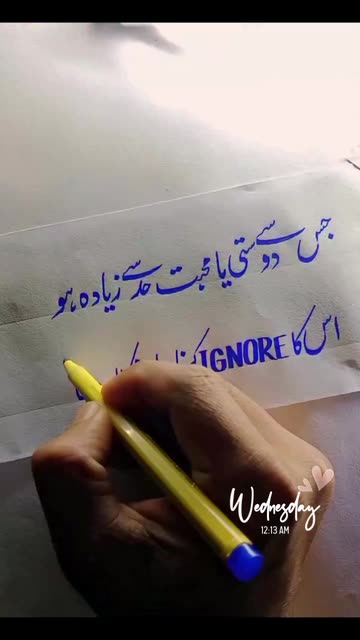 جس سے دوستی یا محبت حد سے زیادہ ہو
اس کا IGNORE کرنا
Wednesday
12:13 AM